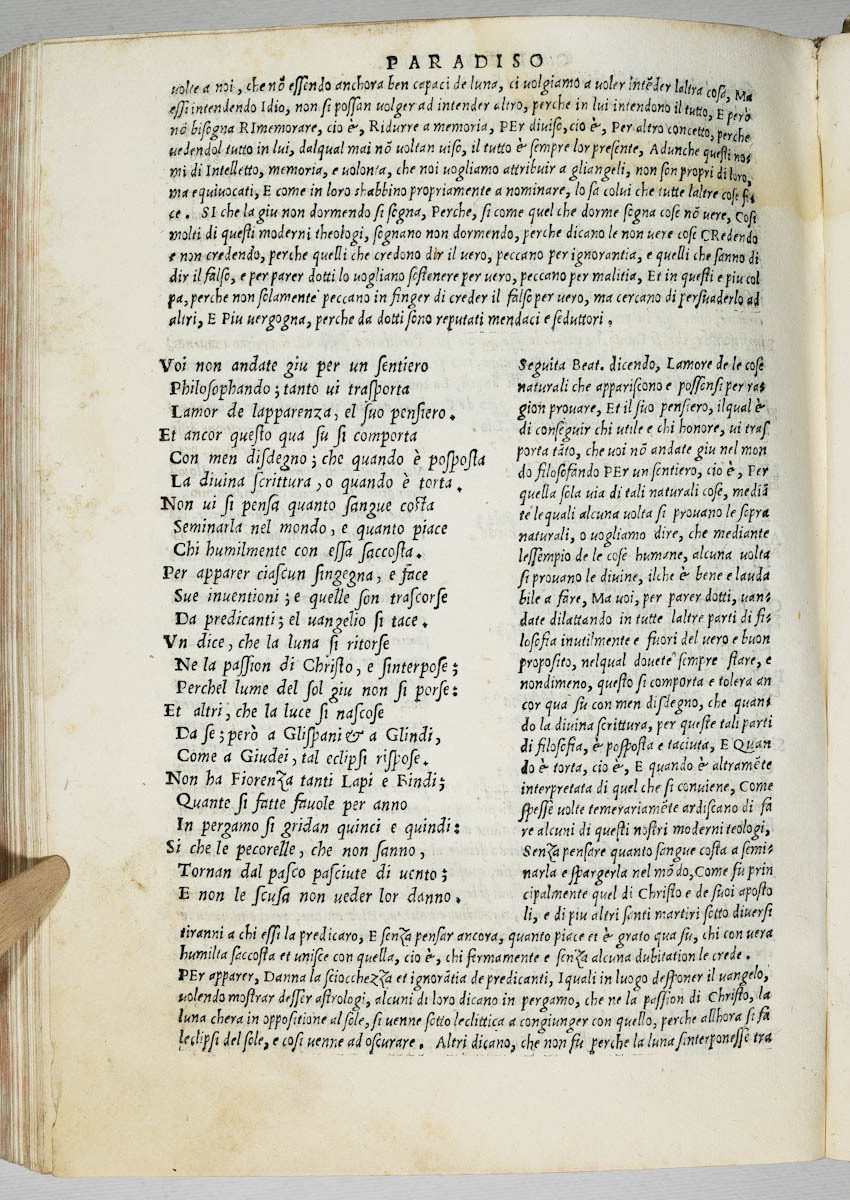 PARADISO
volte a noi, che nõ essendo anchora ben capaci de luna, ci volgiamo a voler intẽder laltra cosa, Ma
essi intendendo Idio, non si possan volger ad intender altro, perche in lui intendono il tutto, E però
nõ bisogna RImemorare, cio è, Ridurre a memoria, PEr diviso, cio è, Per altro concetto, perche
vedendol tutto in lui, dalqual mai nõ voltan viso, il tutto è sempre lor presente, Adunche questi no-
mi di Intelletto, memoria, e volonta, che noi vogliamo attribuir a gliangeli, non son propri di loro,
ma equivocati, E come in loro shabbino propriamente a nominare, lo sa colui che tutte laltre cose fe-
ce. SI che la giu non dormendo si sogna, Perche, si come quel che dorme sogna cose nõ vere, Cosi
molti di questi moderni theologi, sognano non dormendo, perche dicano le non vere cose CRedendo
e non credendo, perche quelli che credono dir il vero, peccano per ignorantia, e quelli che sanno di
dir il falso, e per parer dotti lo vogliano sostenere per vero, peccano per malitia, Et in questi e piu col
pa, perche non solamente peccano in finger di creder il falso per vero, ma cercano di persuaderlo ad
altri, E Piu vergogna, perche da dotti sono reputati mendaci e seduttori.
Voi non andate giu per un sentiero
Philosophando; tanto ui trasporta
Lamor de lapparenza, el suo pensiero.
Et ancor questo qua su si comporta
Con men disdegno; che quando è posposta
La divina scrittura, o quando è torta.
Non ui si pensa quanto sangue costa
Seminarla nel mondo, e quanto piace
Chi humilmente con essa saccosta.
Per apparer ciascun singegna, e face
Sue inventioni; e quelle son trascorse
Da predicanti; el vangelio si tace.
Vn dice, che la luna si ritorse
Ne la passion di Christo, e sinterpose;
Perchel lume del sol giu non si porse:
Et altri, che la luce si nascose
Da se; però a Glispani & a Glindi,
Come a Giudei, tal eclipsi rispose.
Non ha Fiorenza tanti Lapi e Bindi;
Quante si fatte favole per anno
In pergamo si gridan quinci e quindi:
Si che le pecorelle, che non sanno,
Tornan dal pasco pasciute di vento;
E non le scusa non veder lor danno.
Seguita Beat. dicendo, Lamore de le cose
naturali che appariscono e possensi per ra-
gion provare, Et il suo pensiero, ilqual è
di conseguir chi utile e chi honore, ui tras
porta tãto, che voi nõ andate giu nel mon
do filosofando PEr un sentiero, cio è, Per
quella sola via di tali naturali cose, mediã
te lequali alcuna volta si provano le sopra
naturali, o vogliamo dire, che mediante
lessempio de le cose humane, alcuna volta
si provano le divine, ilche è bene e lauda
bile a fare, Ma voi, per parer dotti, van-
date dilattando in tutte laltre parti di fi-
losofia inutilmente e fuori del vero e buon
proposito, nelqual dovete sempre stare, e
nondimeno, questo si comporta e tolera an
cor qua su con men disdegno, che quan-
do la divina scrittura, per queste tali parti
di filosofia, è posposta e taciuta, E QUan
do è torta, cio è, E quando è altramẽte
interpretata di quel che si conviene, Come
spesse volte temerariamẽte ardiscano di fa
re alcuni di questi nostri moderni teologi,
Senza pensare quanto sangue costa a semi-
narla e spargerla nel mõdo, Come fu prin
cipalmente quel di Christo e de suoi aposto
li, e di piu altri santi martiri sotto diversi
tiranni a chi essi la predicaro, E senza pensar ancora, quanto piace et è grato qua su, chi con vera
humilta saccosta et unisce con quella, cio è, chi fermamente e senza alcuna dubitation le crede.
PEr apparer, Danna la sciocchezza et ignorãtia de predicanti, I quali in luogo desponer il vangelo,
volendo mostrar desser astrologi, alcuni di loro dicano in pergamo, che ne la passion di Christo, la
luna chera in oppositione al sole, si venne sotto leclittica a congiunger con quello, perche allhora si fa
leclipsi del sole, e cosi venne ad oscurare. Altri dicano, che non fu perche la luna sinterponesse tra